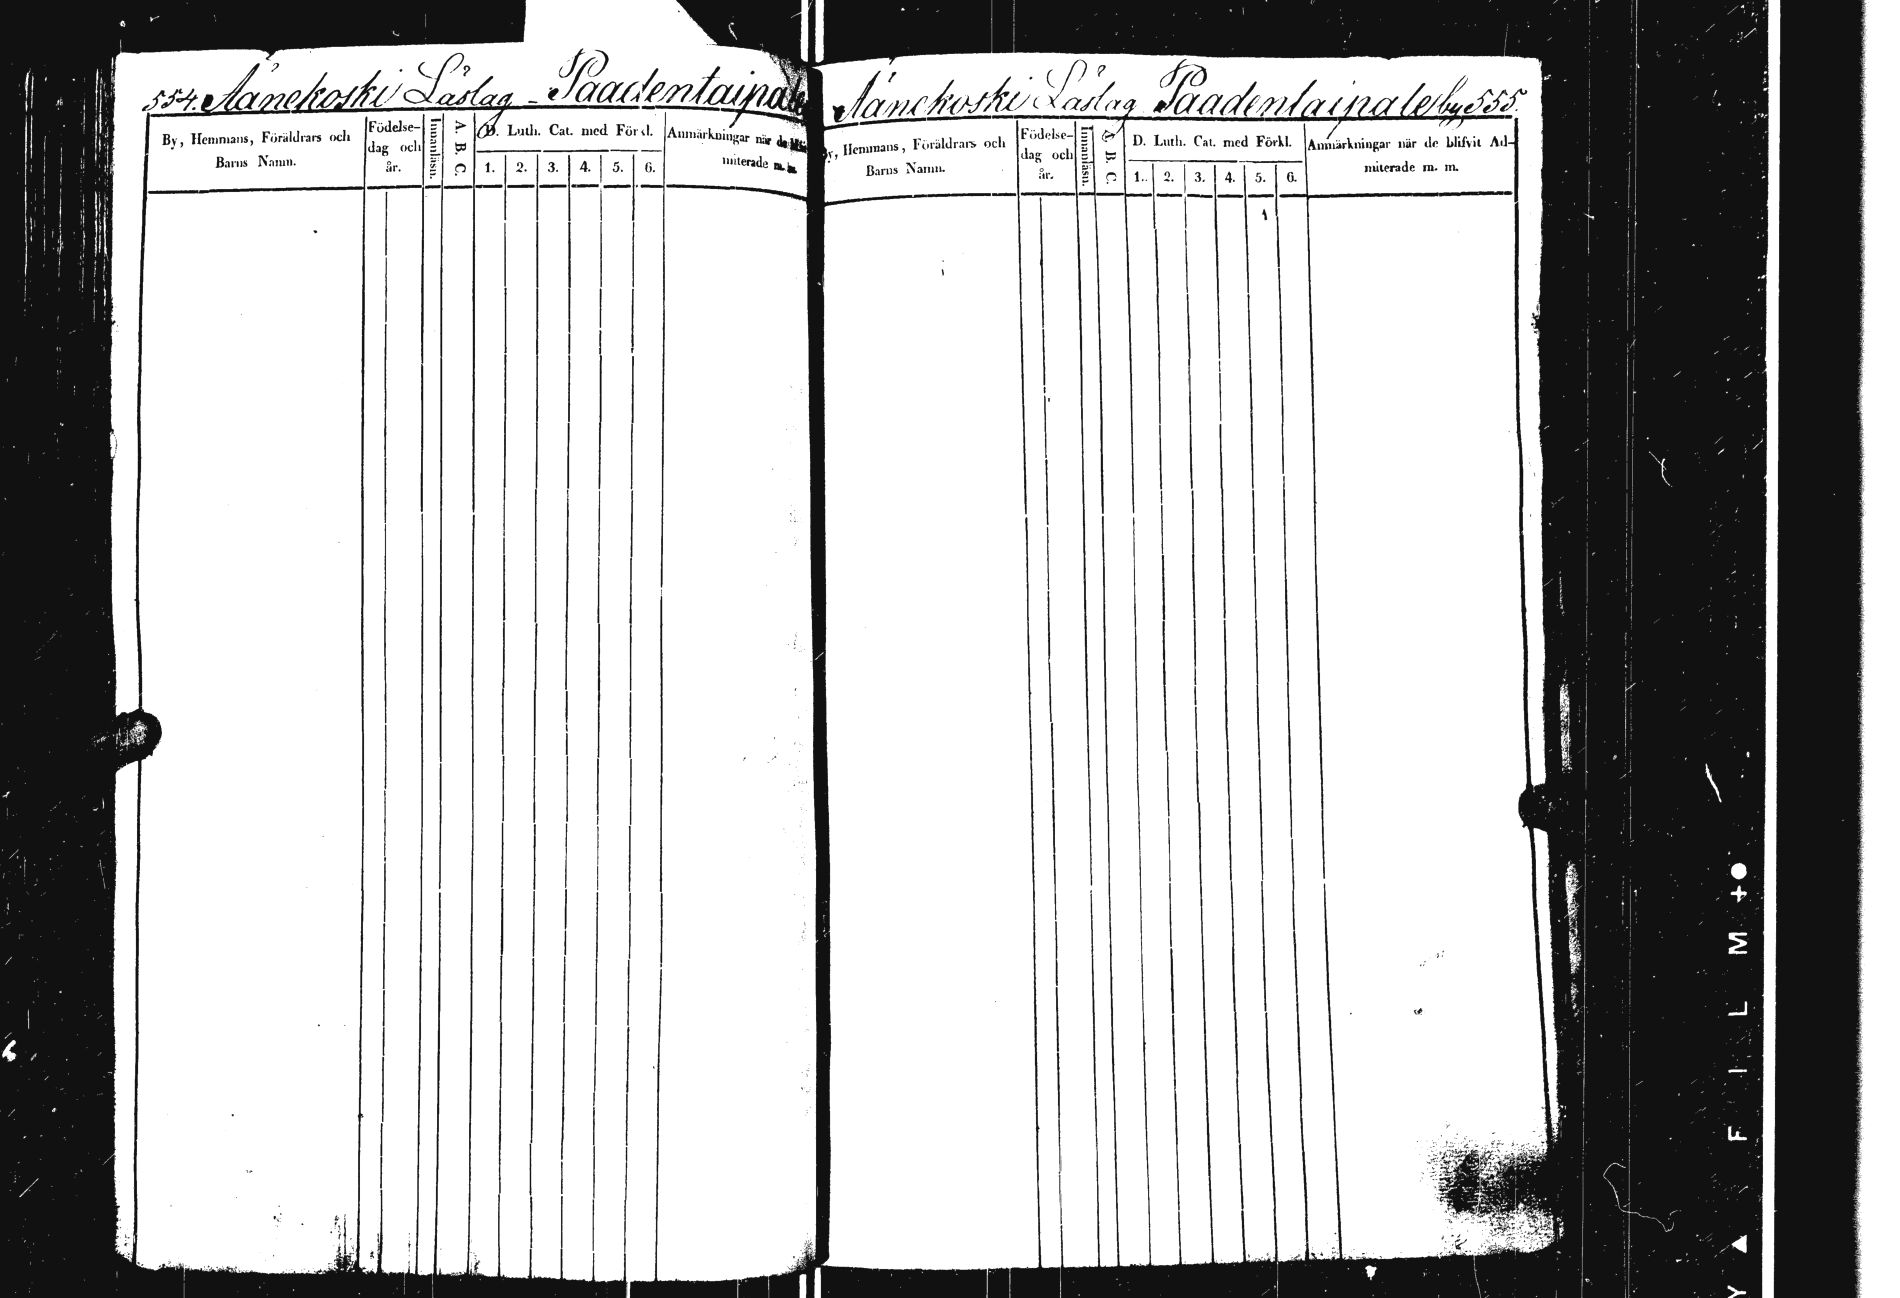 554. Äänekoski Läslag - Paadentaipale
By, Hemmans, Föräldrars och
Barns Namn.
Födelse-
dag och
år.
Innanläsn.
A. B. C.
D. Luth. Cat. med Förkl.
1. 2. 3. 4. 5. 6.
Anmärkningar när de blifvit
miterade m. m.
Äänekoski Läslag Paadentaipale by, 555.
By, Hemmans, Föräldrars och
Barns Namn.
Födelse-
dag och
år.
Innanläsn.
A. B. C.
D. Luth. Cat. med Förkl.
1. 2. 3. 4. 5. 6.
Anmärkningar när de blifvit Ad-
miterade m. m.
Y ▲ F I L M